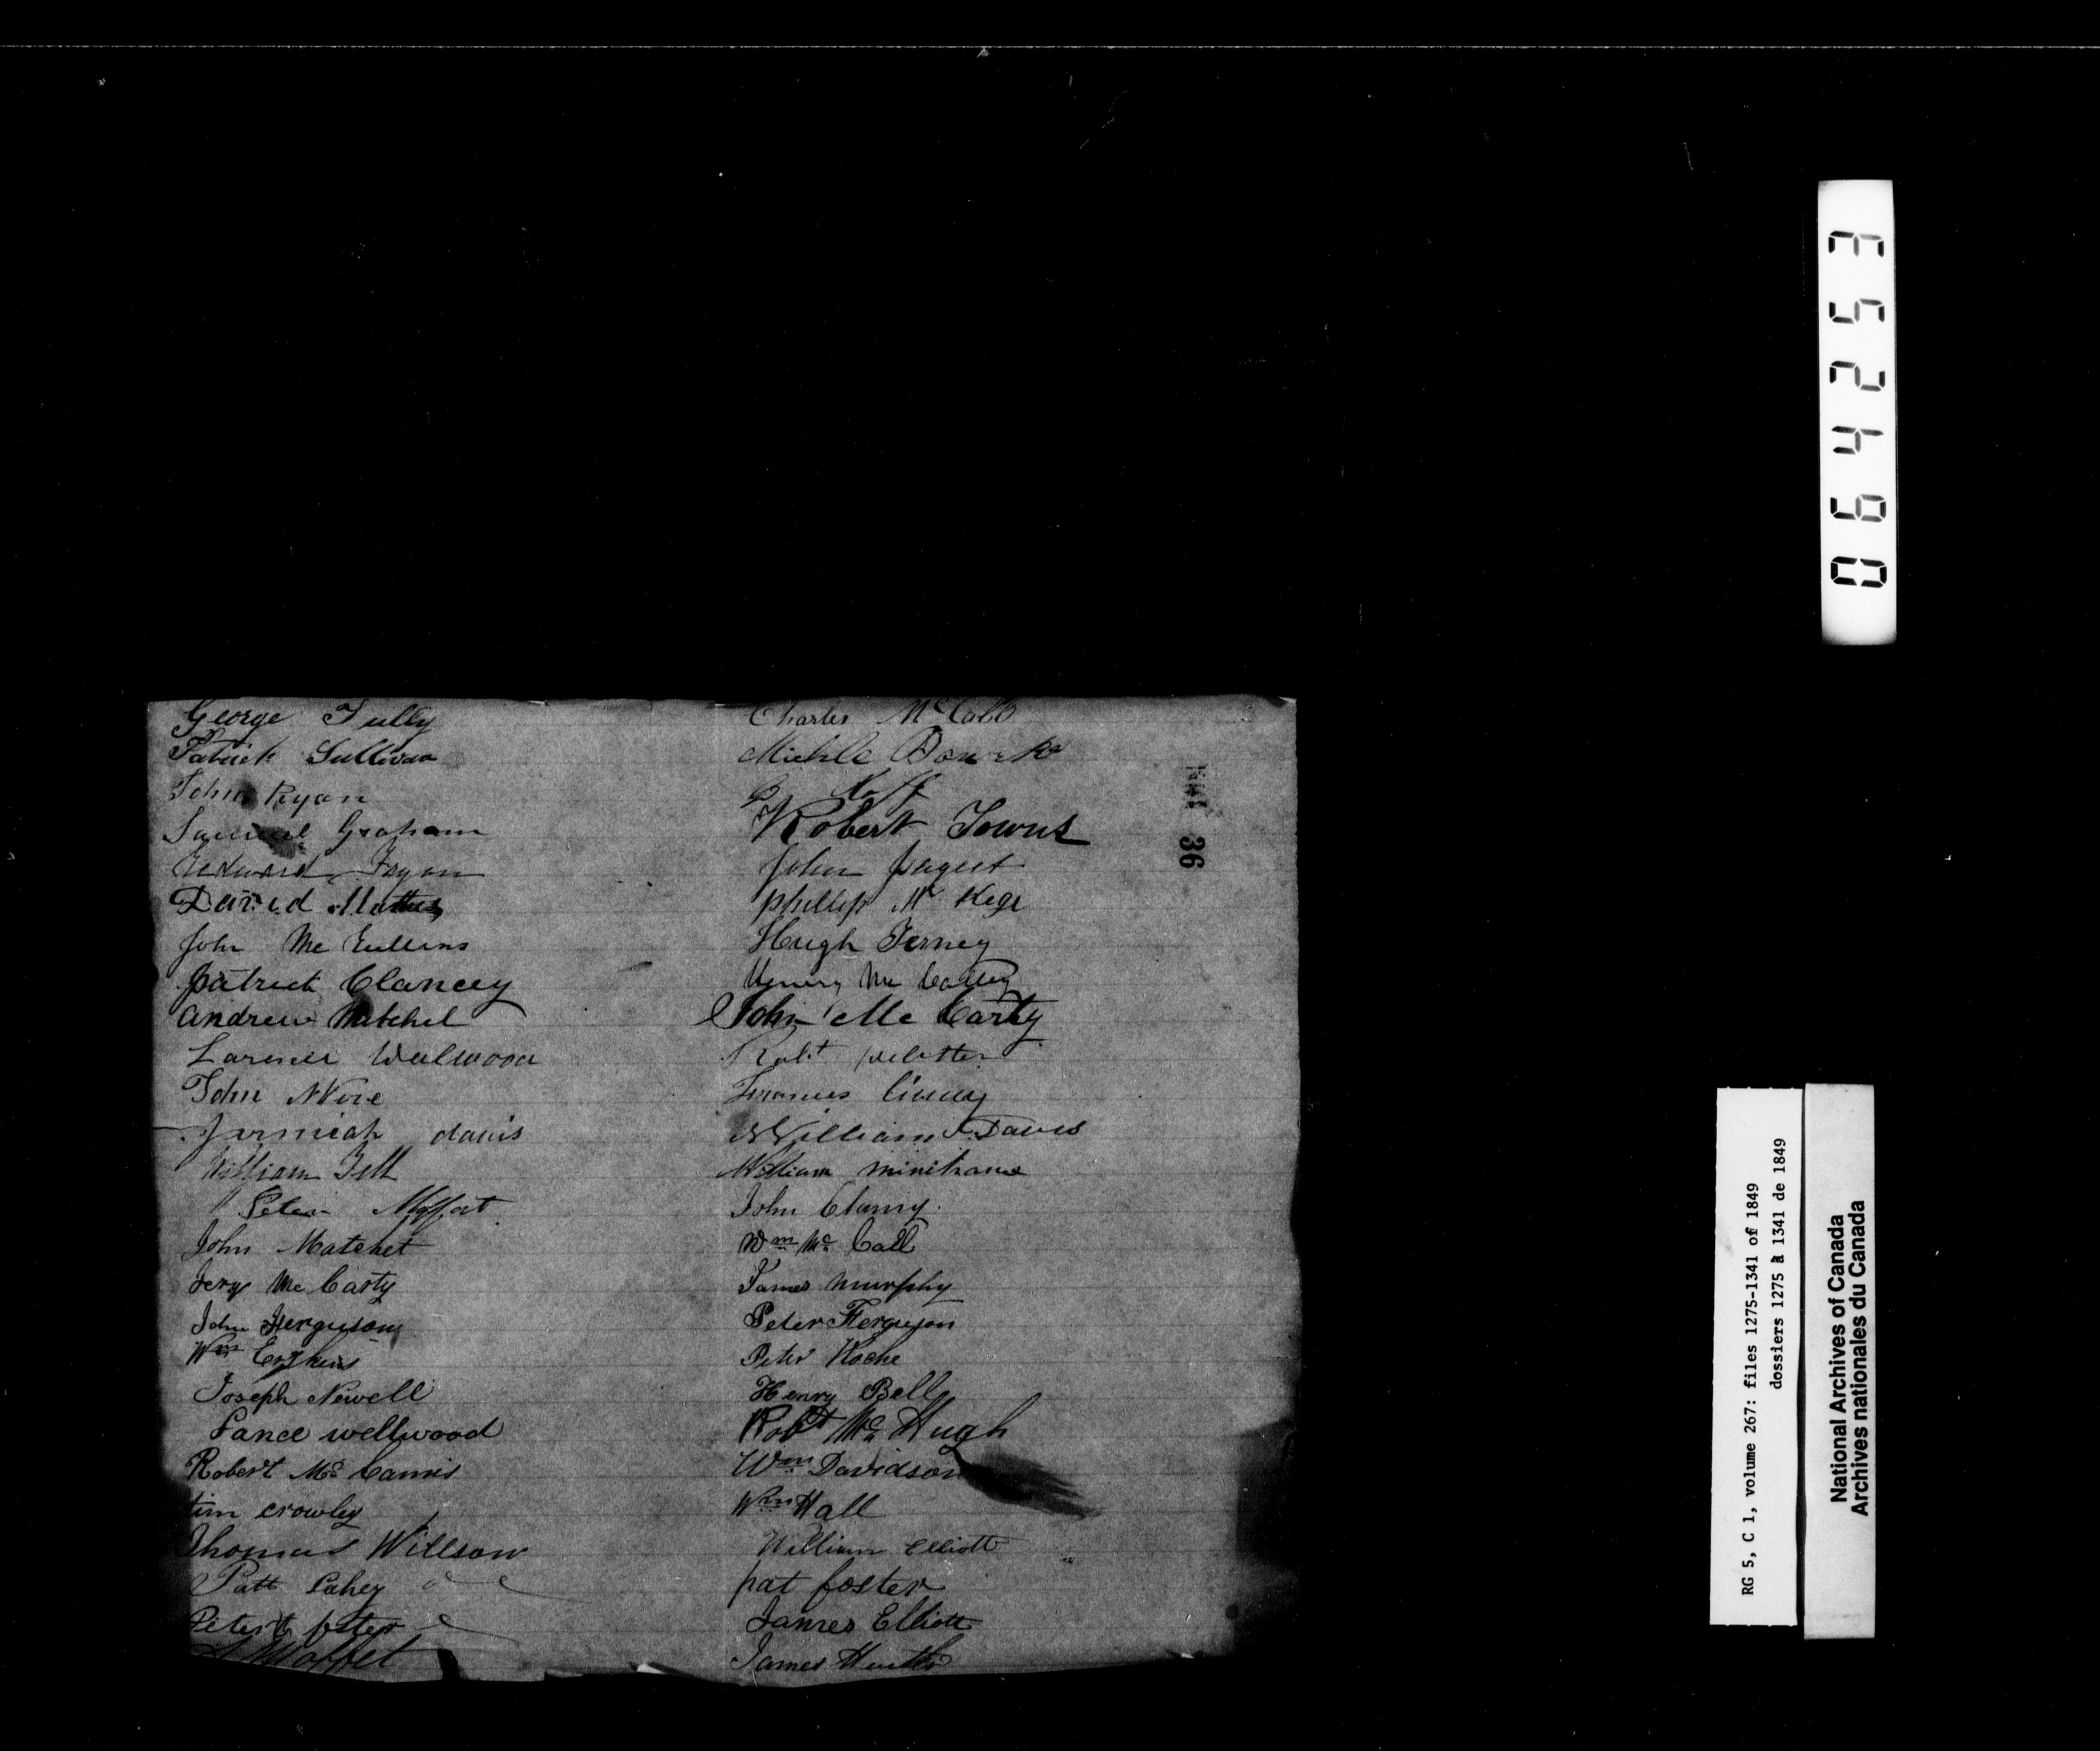 George Tully
Patrick Sullivan
John Ryan
Samuel Graham
Edward Fagan
David Mattus
John Mc
Patrick Clancey
Andrew Mitchel
Wealwood
John
Jermiah davis
William Tilt
Peter Moffat
John Matchet
Jery Mc Carty
John Ferguson
Wm Erskins
Joseph Newell
Lance wellwood
Robert Mc Camis
tim crowley
Thomas Willson
Patt Lahey
Peter foster
Moffet
Charles McCabb
Michele Bourke
Robert Towns
John
phillip Mc Kege
Hugh Terney
Mc
John Mc Carty
Robt
William Davis
William minihane
John Clancy
Wm Mc Call
James murphy
Peter Ferguson
Peter Roche
Henry Bell
Robt Mc Hugh
Wm Davidson
Wm Hall
William Elliott
pat foster
James Elliott
James
36
064253
RG 5, C 1, volume 267: files 1275-1341 of 1849
dossiers 1275 à 1341 de 1849
National Archives of Canada
Archives nationales du Canada